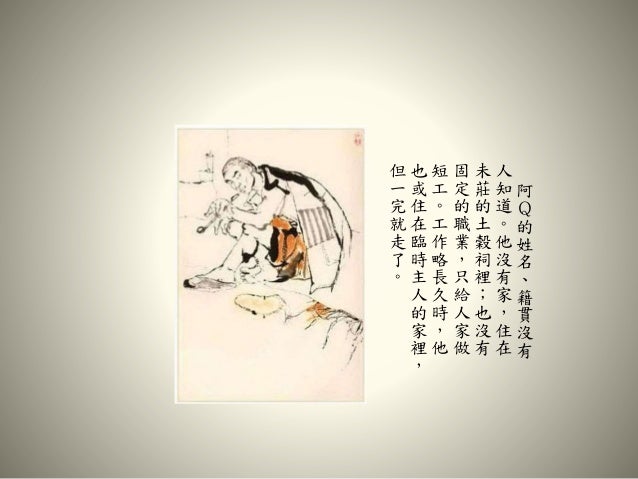 阿Q的姓名、籍貫沒有
人知道。他沒有家，住在
未莊的土穀祠裡；也沒有
固定的職業，只給人家做
短工。工作略長久時，他
也或住在臨時主人的家裡，
但一完就走了。